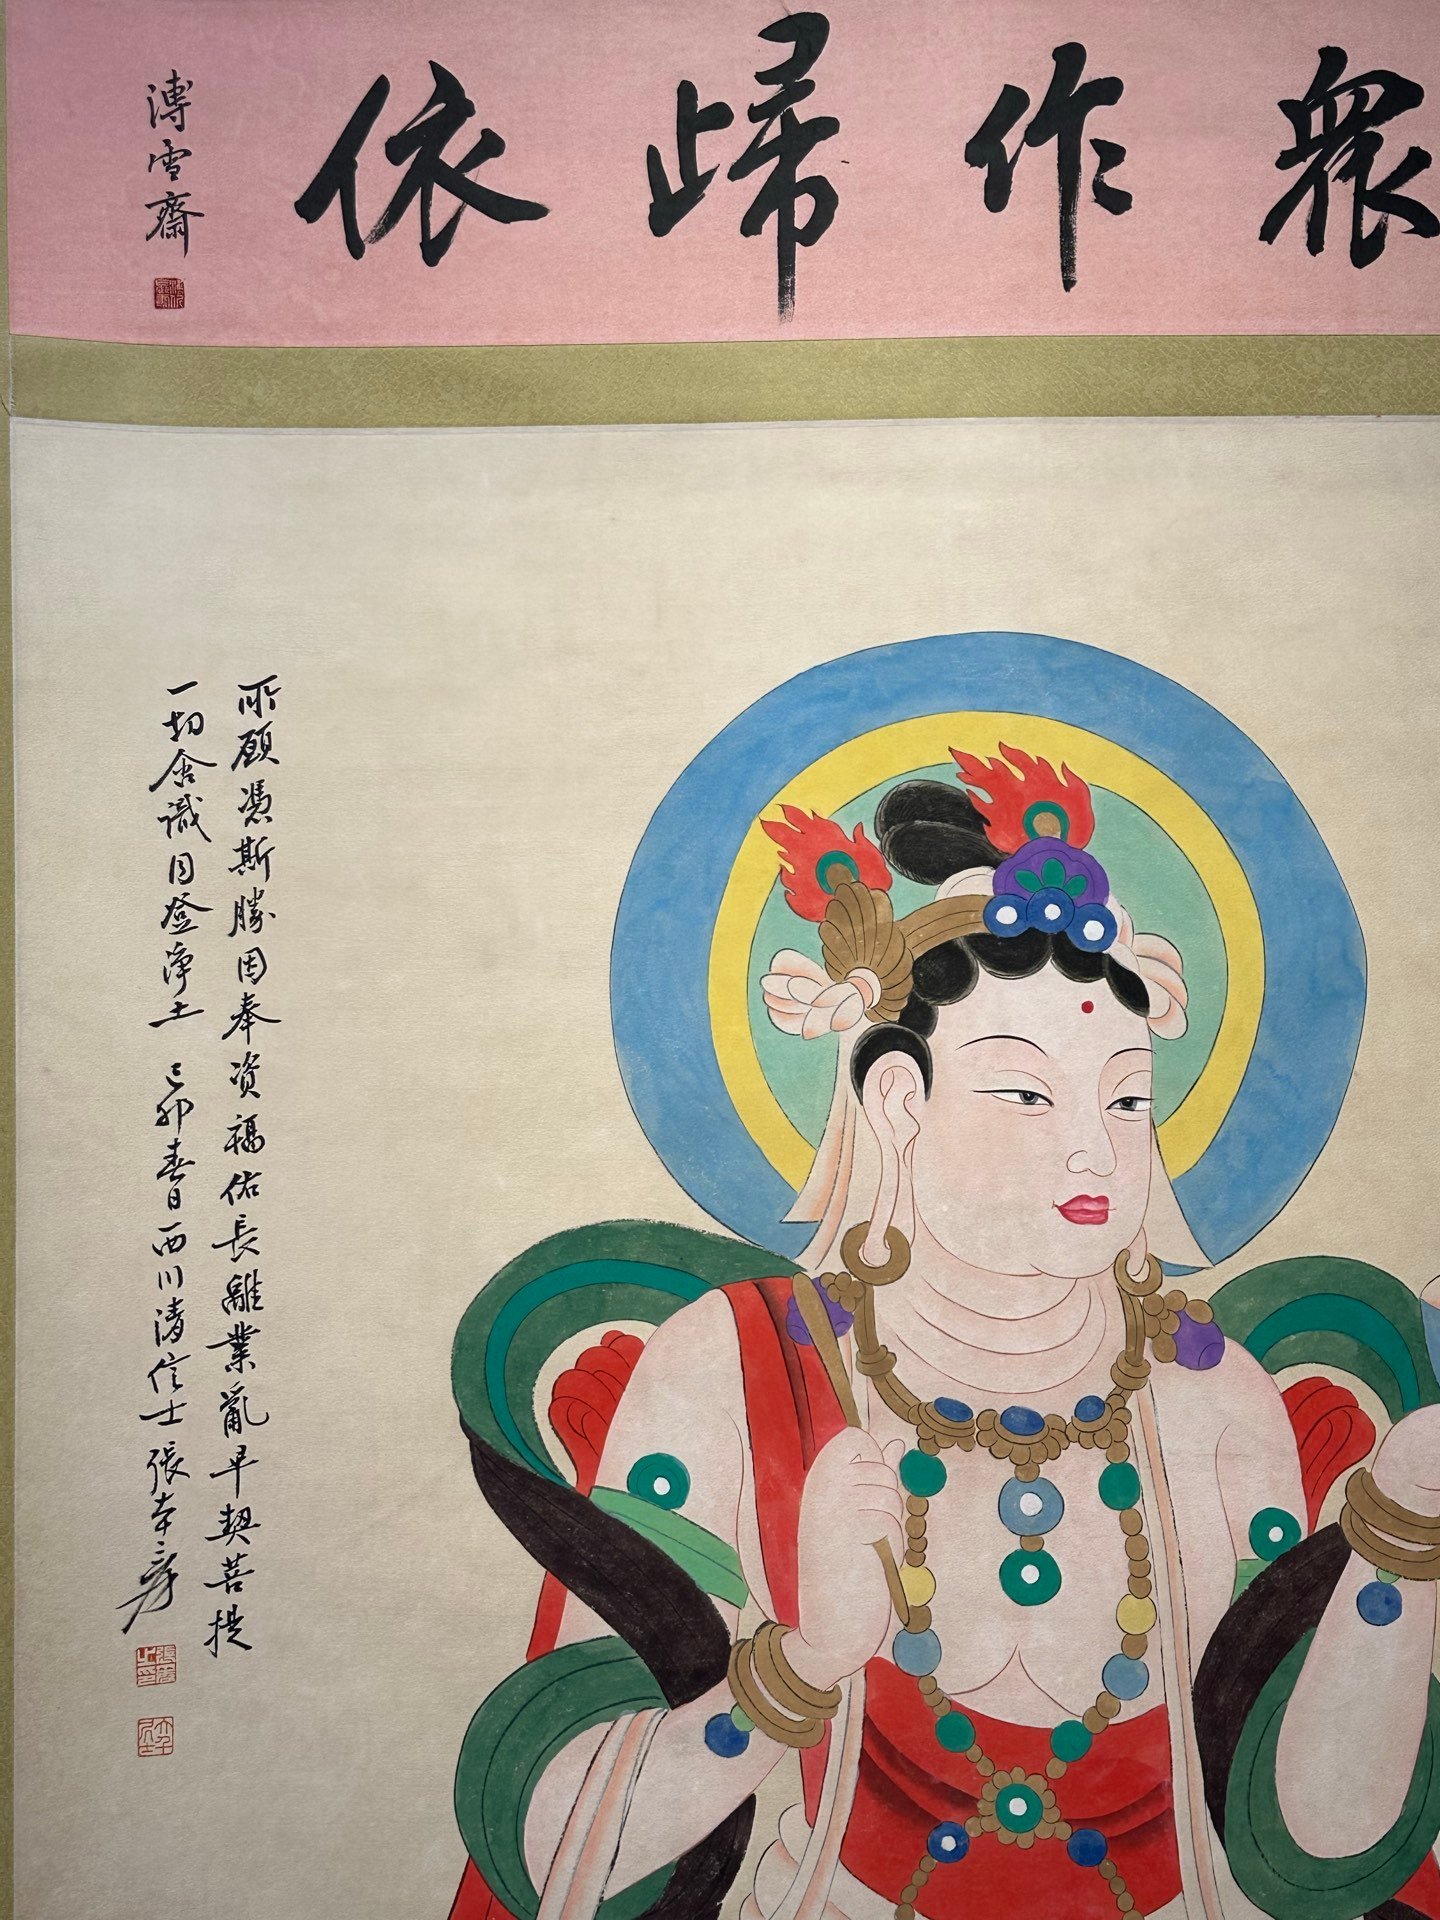 眾作歸依
溥雪齋
所願憑斯勝因奉資福佑長離業亂早契菩提
一切含識同登淨土 己卯春日西川清信士張大千爰